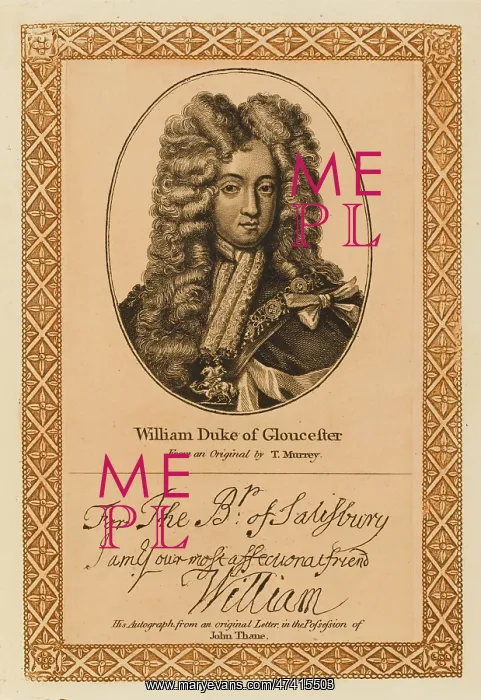 ME
PL
William Duke of Glouceſter
From an Original by T. Murrey.
ME
PL
For The Bp. of Salisbury
I am Your most affectionat friend
William
His Autograph, from an original Letter, in the Poſseſsion of
John Thane.
www.maryevans.com/47415503